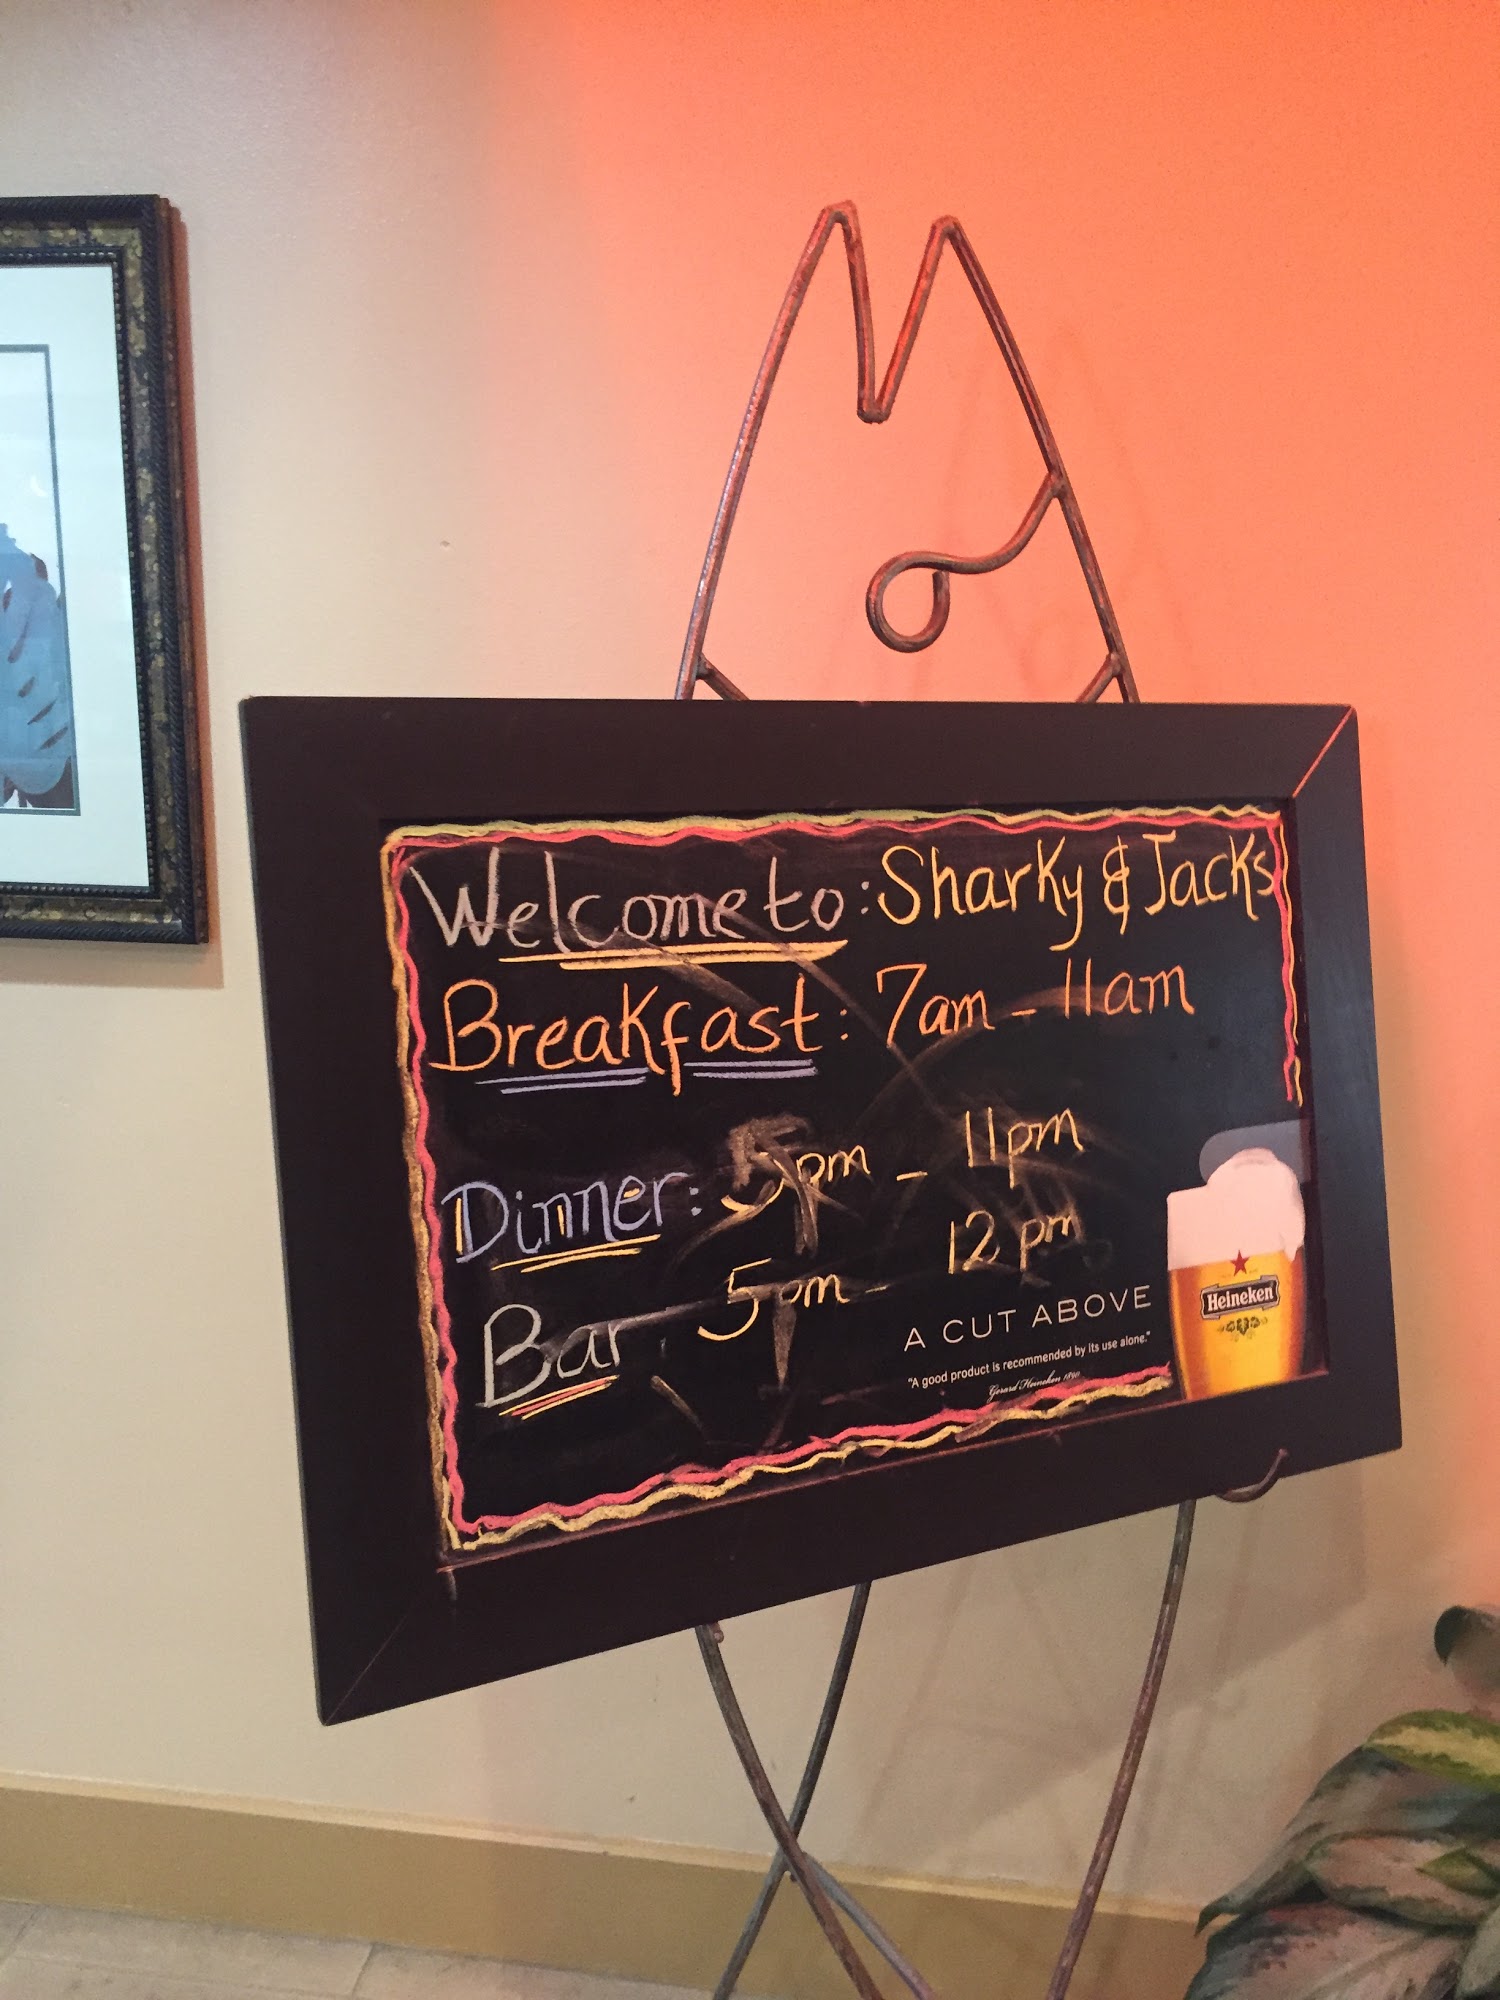 Welcome to: Sharky & Jacks
Breakfast: 7am - 11am
Dinner: 5pm - 11pm
Bar: 5pm - 12pm
A CUT ABOVE
"A good product is recommended by its use alone."
Gerard Heineken 1890
Heineken